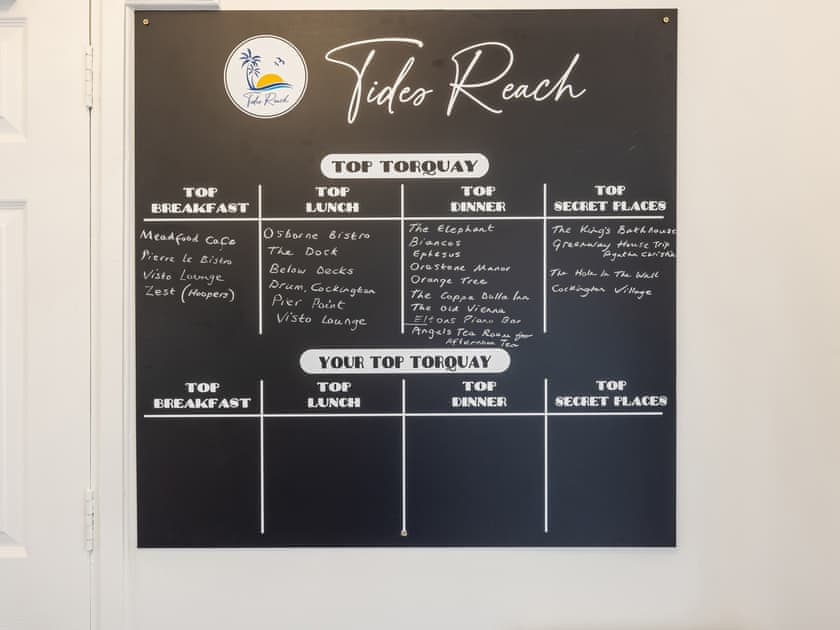 Tides Reach
Tides Reach
TOP TORQUAY
TOP
BREAKFAST
Meadfood Cafe
Pierre Le Bistro
Visto Lounge
Zest (Hoopers)
TOP
LUNCH
Osborne Bistro
The Dock
Below Decks
Drum, Cockington
Pier Point
Visto Lounge
TOP
DINNER
The Elephant
Biancos
Ephesus
Orestone Manor
Orange Tree
The Coppa Dolla Inn
The Old Vienna
Eltons Piano Bar
Angels Tea Room for
Afternoon Tea
TOP
SECRET PLACES
The King's Bathhouse
Greenway House Trip
Agatha Christie
The Hole In The Wall
Cockington Village
YOUR TOP TORQUAY
TOP
BREAKFAST
TOP
LUNCH
TOP
DINNER
TOP
SECRET PLACES